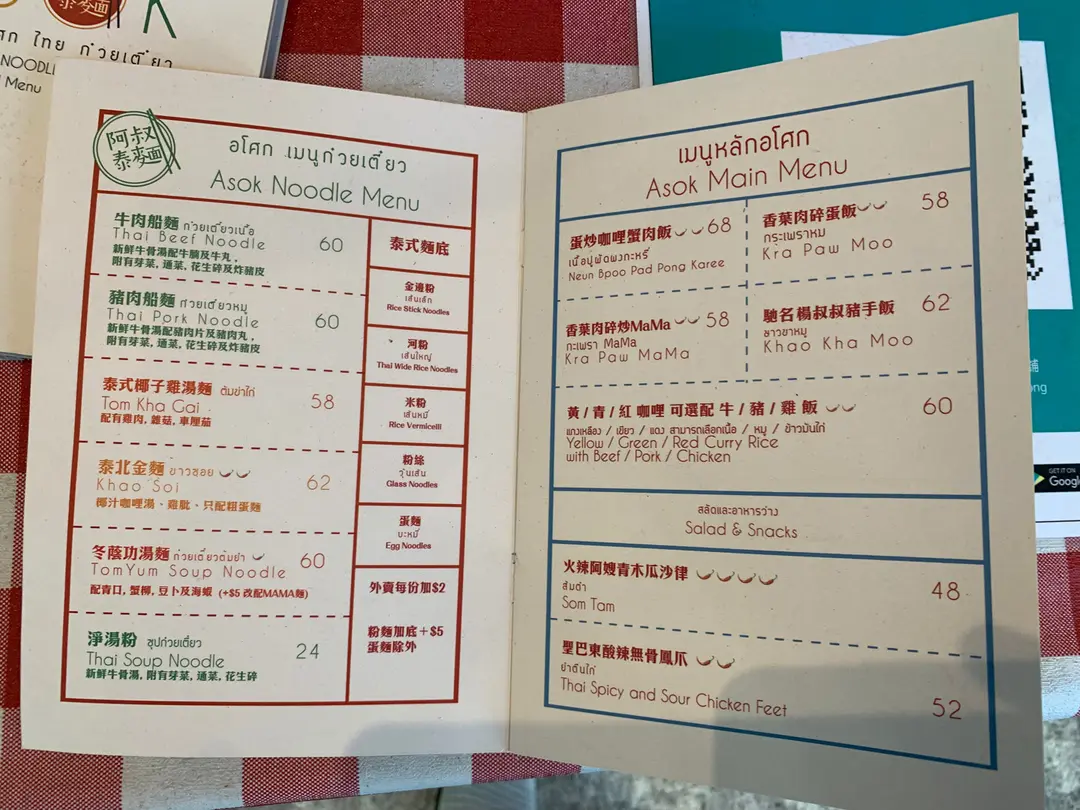 泰麵
ไทย ก๋วยเตี๋ยว
Menu
阿叔
泰麵
อโศก เมนูก๋วยเตี๋ยว
Asok Noodle Menu
牛肉船麵 ก๋วยเตี๋ยวเนื้อ
Thai Beef Noodle 60
新鮮牛骨湯配牛腩及牛丸,
附有芽菜, 通菜, 花生碎及炸豬皮
豬肉船麵 ก๋วยเตี๋ยวหมู
Thai Pork Noodle 60
新鮮牛骨湯配豬肉片及豬肉丸,
附有芽菜, 通菜, 花生碎及炸豬皮
泰式椰子雞湯麵 ต้มข่าไก่
Tom Kha Gai 58
配有雞肉, 雜菇, 車厘茄
泰北金麵 ขาวซอย
Khao Soi 62
椰汁咖喱湯、雞髀、只配粗蛋麵
冬蔭功湯麵 ก๋วยเตี๋ยวต้มยำ
TomYum Soup Noodle 60
配青口, 蟹柳, 豆卜及海蝦 (+$5 改配MAMA麵)
淨湯粉 ซุปก๋วยเตี๋ยว
Thai Soup Noodle 24
新鮮牛骨湯, 附有芽菜, 通菜, 花生碎
泰式麵底
金邊粉
เส้นเล็ก
Rice Stick Noodles
河粉
เส้นใหญ่
Thai Wide Rice Noodles
米粉
เส้นหมี่
Rice Vermicelli
粉絲
วุ้นเส้น
Glass Noodles
蛋麵
บะหมี่
Egg Noodles
外賣每份加$2
粉麵加底+$5
蛋麵除外
เมนูหลักอโศก
Asok Main Menu
蛋炒咖喱蟹肉飯 68
เนื้อปูผัดผงกะหรี่
Neun Bpoo Pad Pong Karee
香葉肉碎蛋飯 58
กระเพราหม
Kra Paw Moo
香葉肉碎炒MaMa 58
กะเพรา MaMa
Kra Paw MaMa
馳名楊叔叔豬手飯 62
ขาวขาหมู
Khao Kha Moo
黃/青/紅 咖喱 可選配 牛/豬/雞 飯 60
แกงเหลือง / เขียว / แดง สามารถเลือกเนื้อ / หมู / ข้าวมันไก่
Yellow / Green / Red Curry Rice
with Beef / Pork / Chicken
สลัดและอาหารว่าง
Salad & Snacks
火辣阿嫂青木瓜沙律
ส้มตำ 48
Som Tam
聖巴東酸辣無骨鳳爪
ยำตีนไก่
Thai Spicy and Sour Chicken Feet 52
GET IT ON
Google